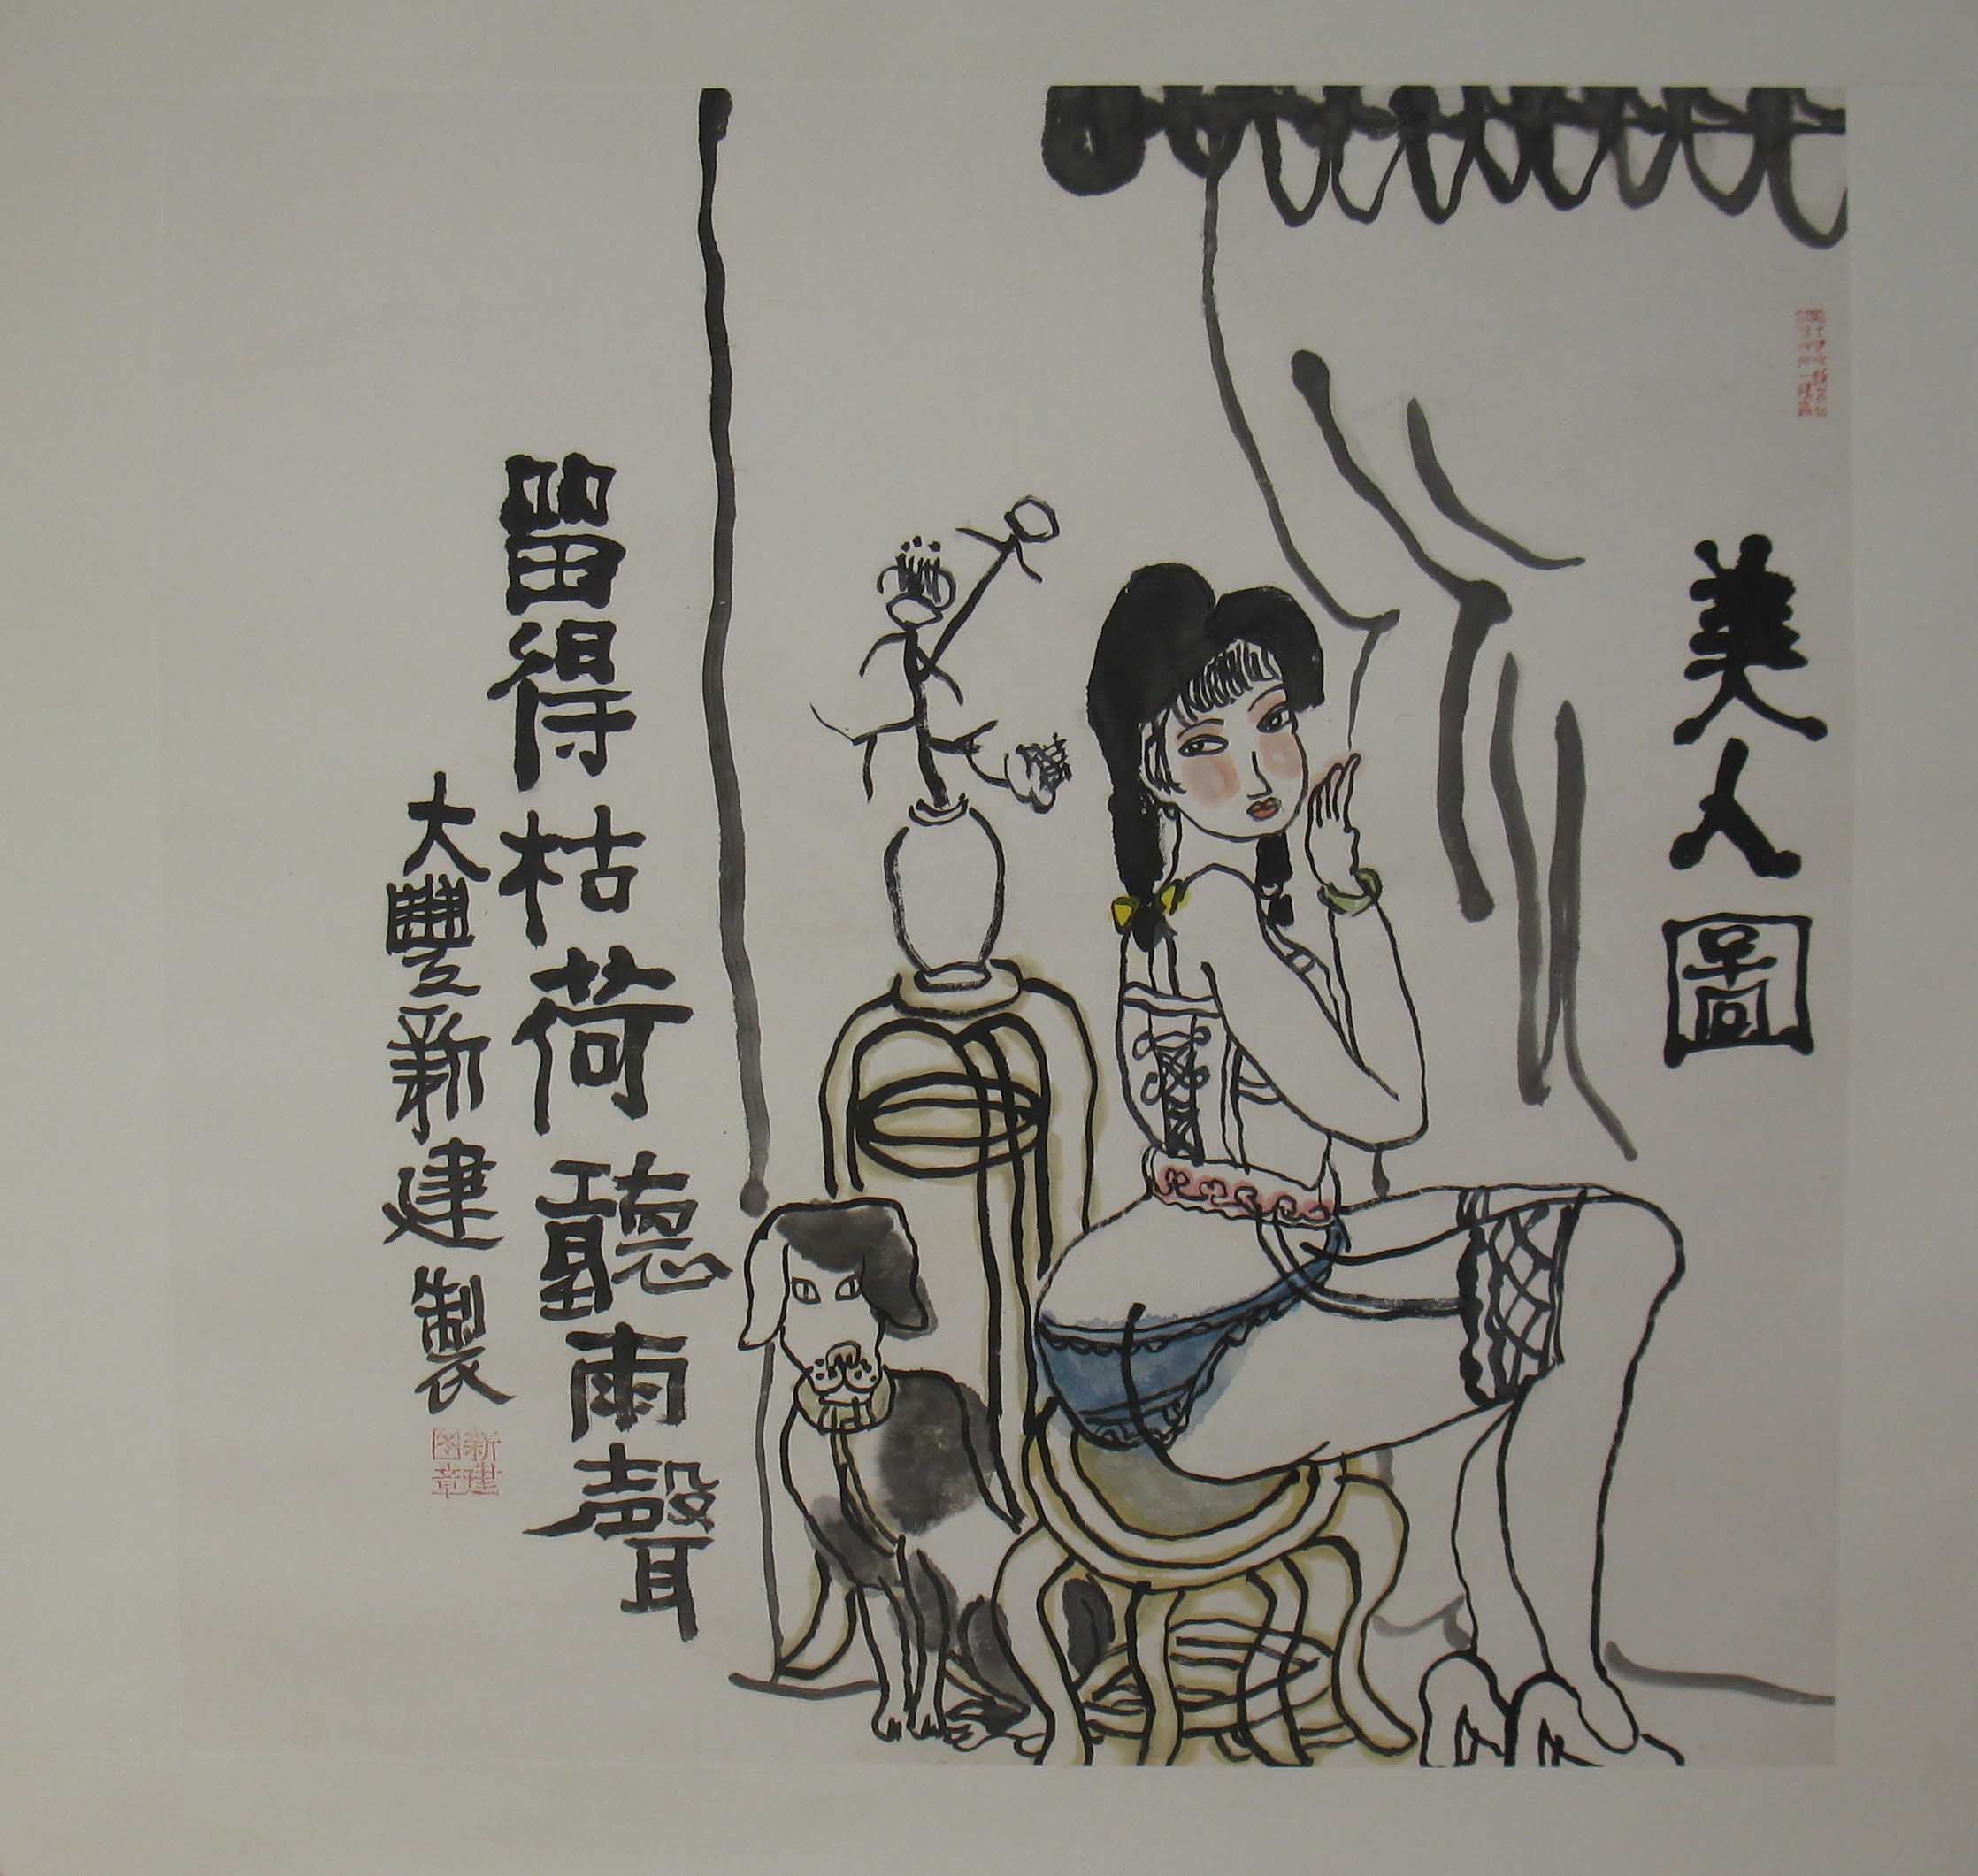 美人圖
留得枯荷聽雨聲
大豐新建製
新建
图章